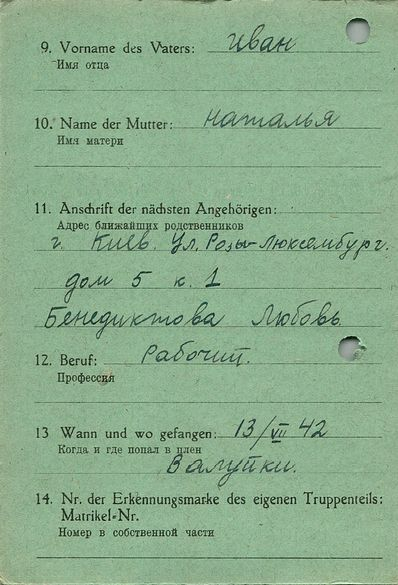 9. Vorname des Vaters: Иван
Имя отца
10. Name der Mutter: Наталья
Имя матери
11. Anschrift der nächsten Angehörigen:
Адрес ближайших родственников
г. Киев. Ул. Розы-Люксембург.
дом 5 к. 1
Бенедиктова Любовь
12. Beruf: Рабочий.
Профессия
13 Wann und wo gefangen: 13/VII 42
Когда и где попал в плен
Валуйки.
14. Nr. der Erkennungsmarke des eigenen Truppenteils:
Matrikel-Nr.
Номер в собственной части